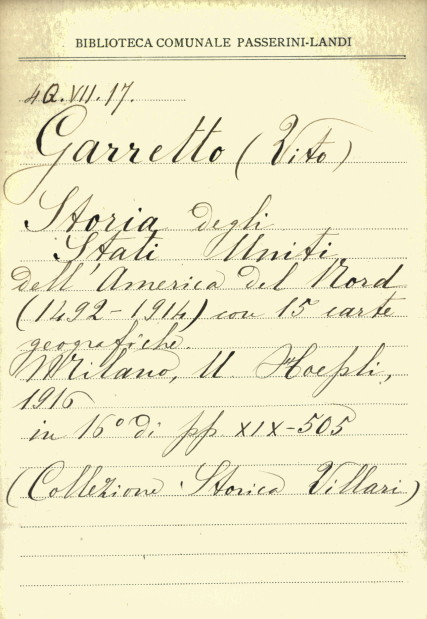 BIBLIOTECA COMUNALE PASSERINI-LANDI
4Q.VII.17.
Garretto (Vito)
Storia degli
Stati Uniti
dell'America del Nord
(1492-1914) con 15 carte
geografiche.
Milano, U Hoepli,
1916
in 16° di pp XIX-505
(Collezione Storica Villari)